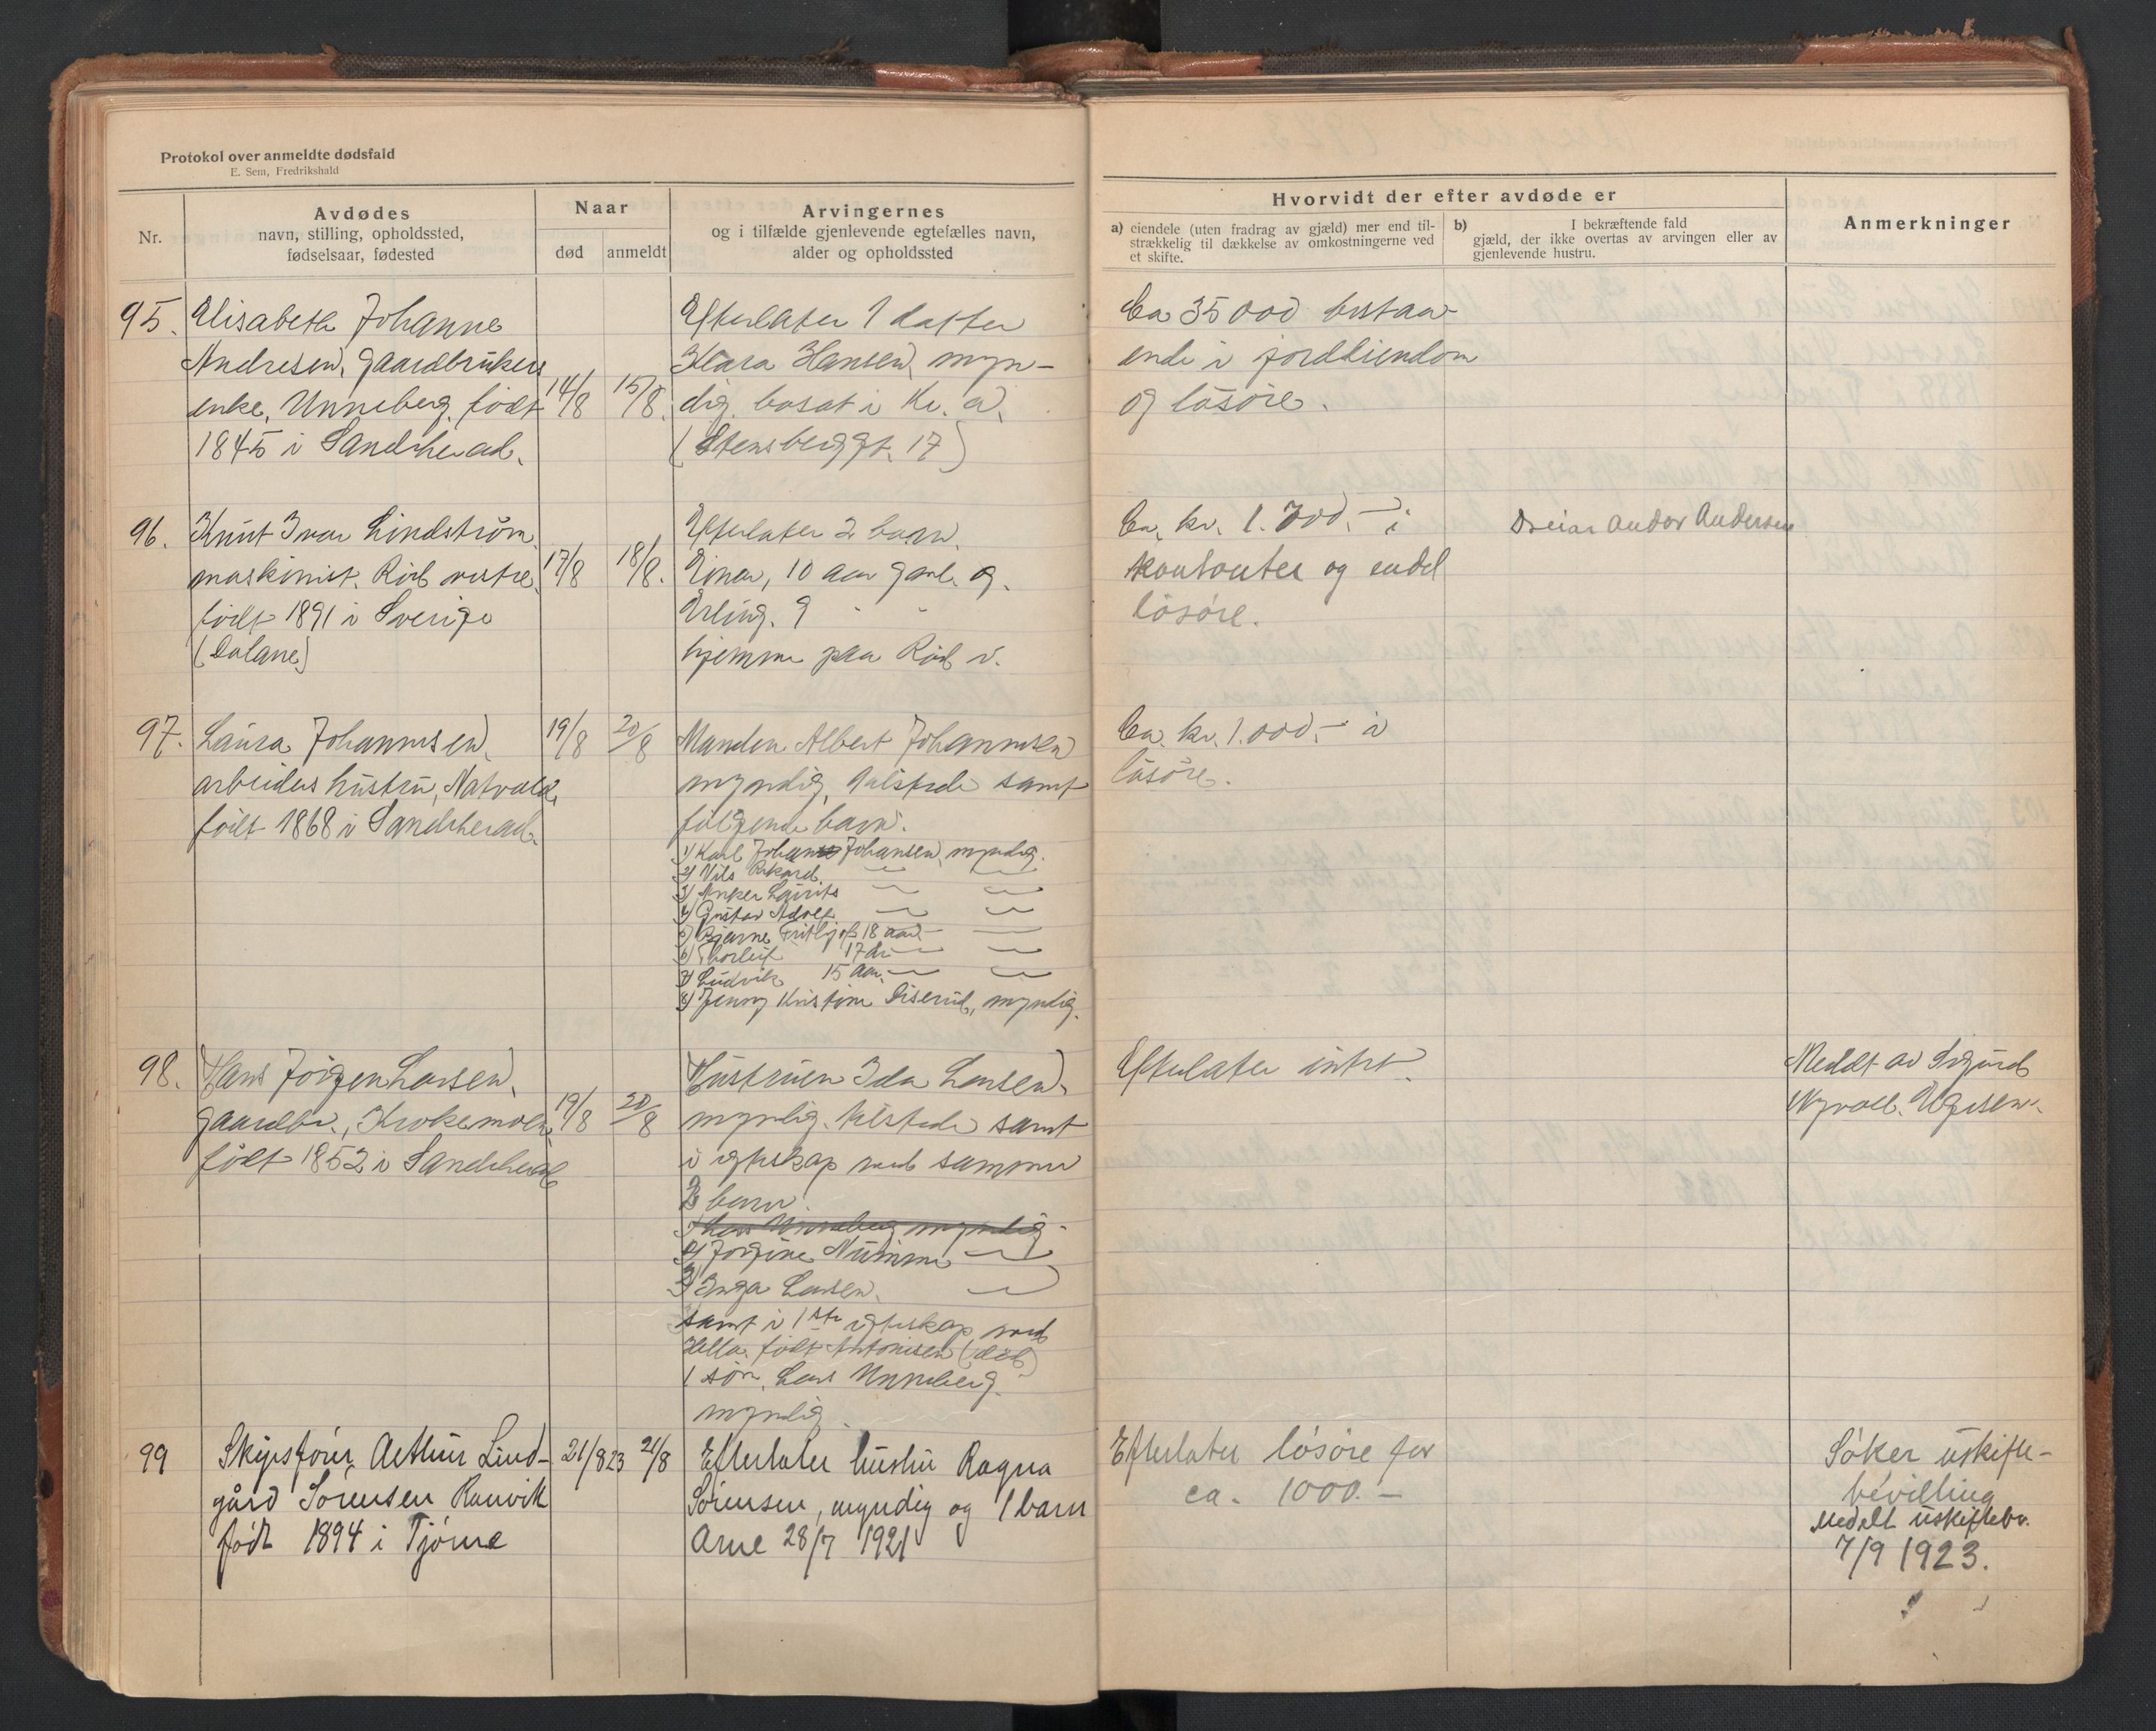 Protokol over anmeldte dødsfald
E. Sem, Fredrikshald
Nr.
Avdødes
navn, stilling, opholdssted,
fødselsaar, fødested
Naar
død
anmeldt
Arvingernes
og i tilfælde gjenlevende egtefælles navn,
alder og opholdssted
Hvorvidt der efter avdøde er
a) eiendele (uten fradrag av gjæld) mer end til-
strækkelig til dækkelse av omkostningerne ved
et skifte.
b) I bekræftende fald
gjæld, der ikke overtas av arvingen eller av
gjenlevende hustru.
Anmerkninger
95. Elisabeth Johanne
Andresen, gaardbrukers
enke, Unneberg, født
1845 i Sandeherad.
14/8
15/8.
Efterlater 1 datter
Klara Hansen, myn-
dig, bosat i Kr. a.
(Stensberggt. 17)
Ca 35000 bestaa-
ende i jordeiendom
og løsøre.
96. Knut Ivar Lindstrøm
maskinist. Rød vestre,
født 1891 i Sverige
(Dalane)
17/8
18/8.
Efterlater 2 barn.
Einar, 10 aar gml. og
Erling. 9 - -
hjemme paa Rød v.
Ca. kr. 1.700.- i
kontanter og endel
løsøre.
Dreiar Andor Andersen
97. Laura Johannesen,
arbeiders hustru, Natvald,
født 1868 i Sandeherad.
19/8
20/8
Manden Albert Johannesen
myndig, talstede samt
følgende barn:
1) Karl Johan Johansen, myndig.
2) Nils Rikard
3) Anker Laurits
4) Gustav Adolf
5) Bjarne Fritjof 18 aar
6) Thorleif 17 aar
7) Ludvik 15 aar
8) Jenny Kristine Diserud, myndig.
Ca. kr. 1.000.- i
løsøre.
98. Hans Jørgen Larsen,
gaardbr., Krokemoen
født 1852 i Sandeherad
19/8
20/8
Hustruen Ida Larsen,
myndig. talstede samt
i egteskap med samme
2 barn:
1) Lars Unneberg myndig
2) Jørgine Numme
3) Inga Larsen.
samt i 1ste egteskap med
Hella, født Antonisen (død)
1 søn, Lars Unneberg.
myndig.
Efterlater intet.
Meddt av Sigurd
99 Skipsfører Arthur Lind-
gård Sørensen Ranvik
født 1894 i Tjøme
21/8 23
21/8
Efterlater hustru Ragna
Sørensen, myndig og 1 barn
Arne 28/7 1921
Efterlater løsøre for
ca. 1000.-
Søker uskifte-
bevilling
Meddelt uskiftebv.
7/9 1923.